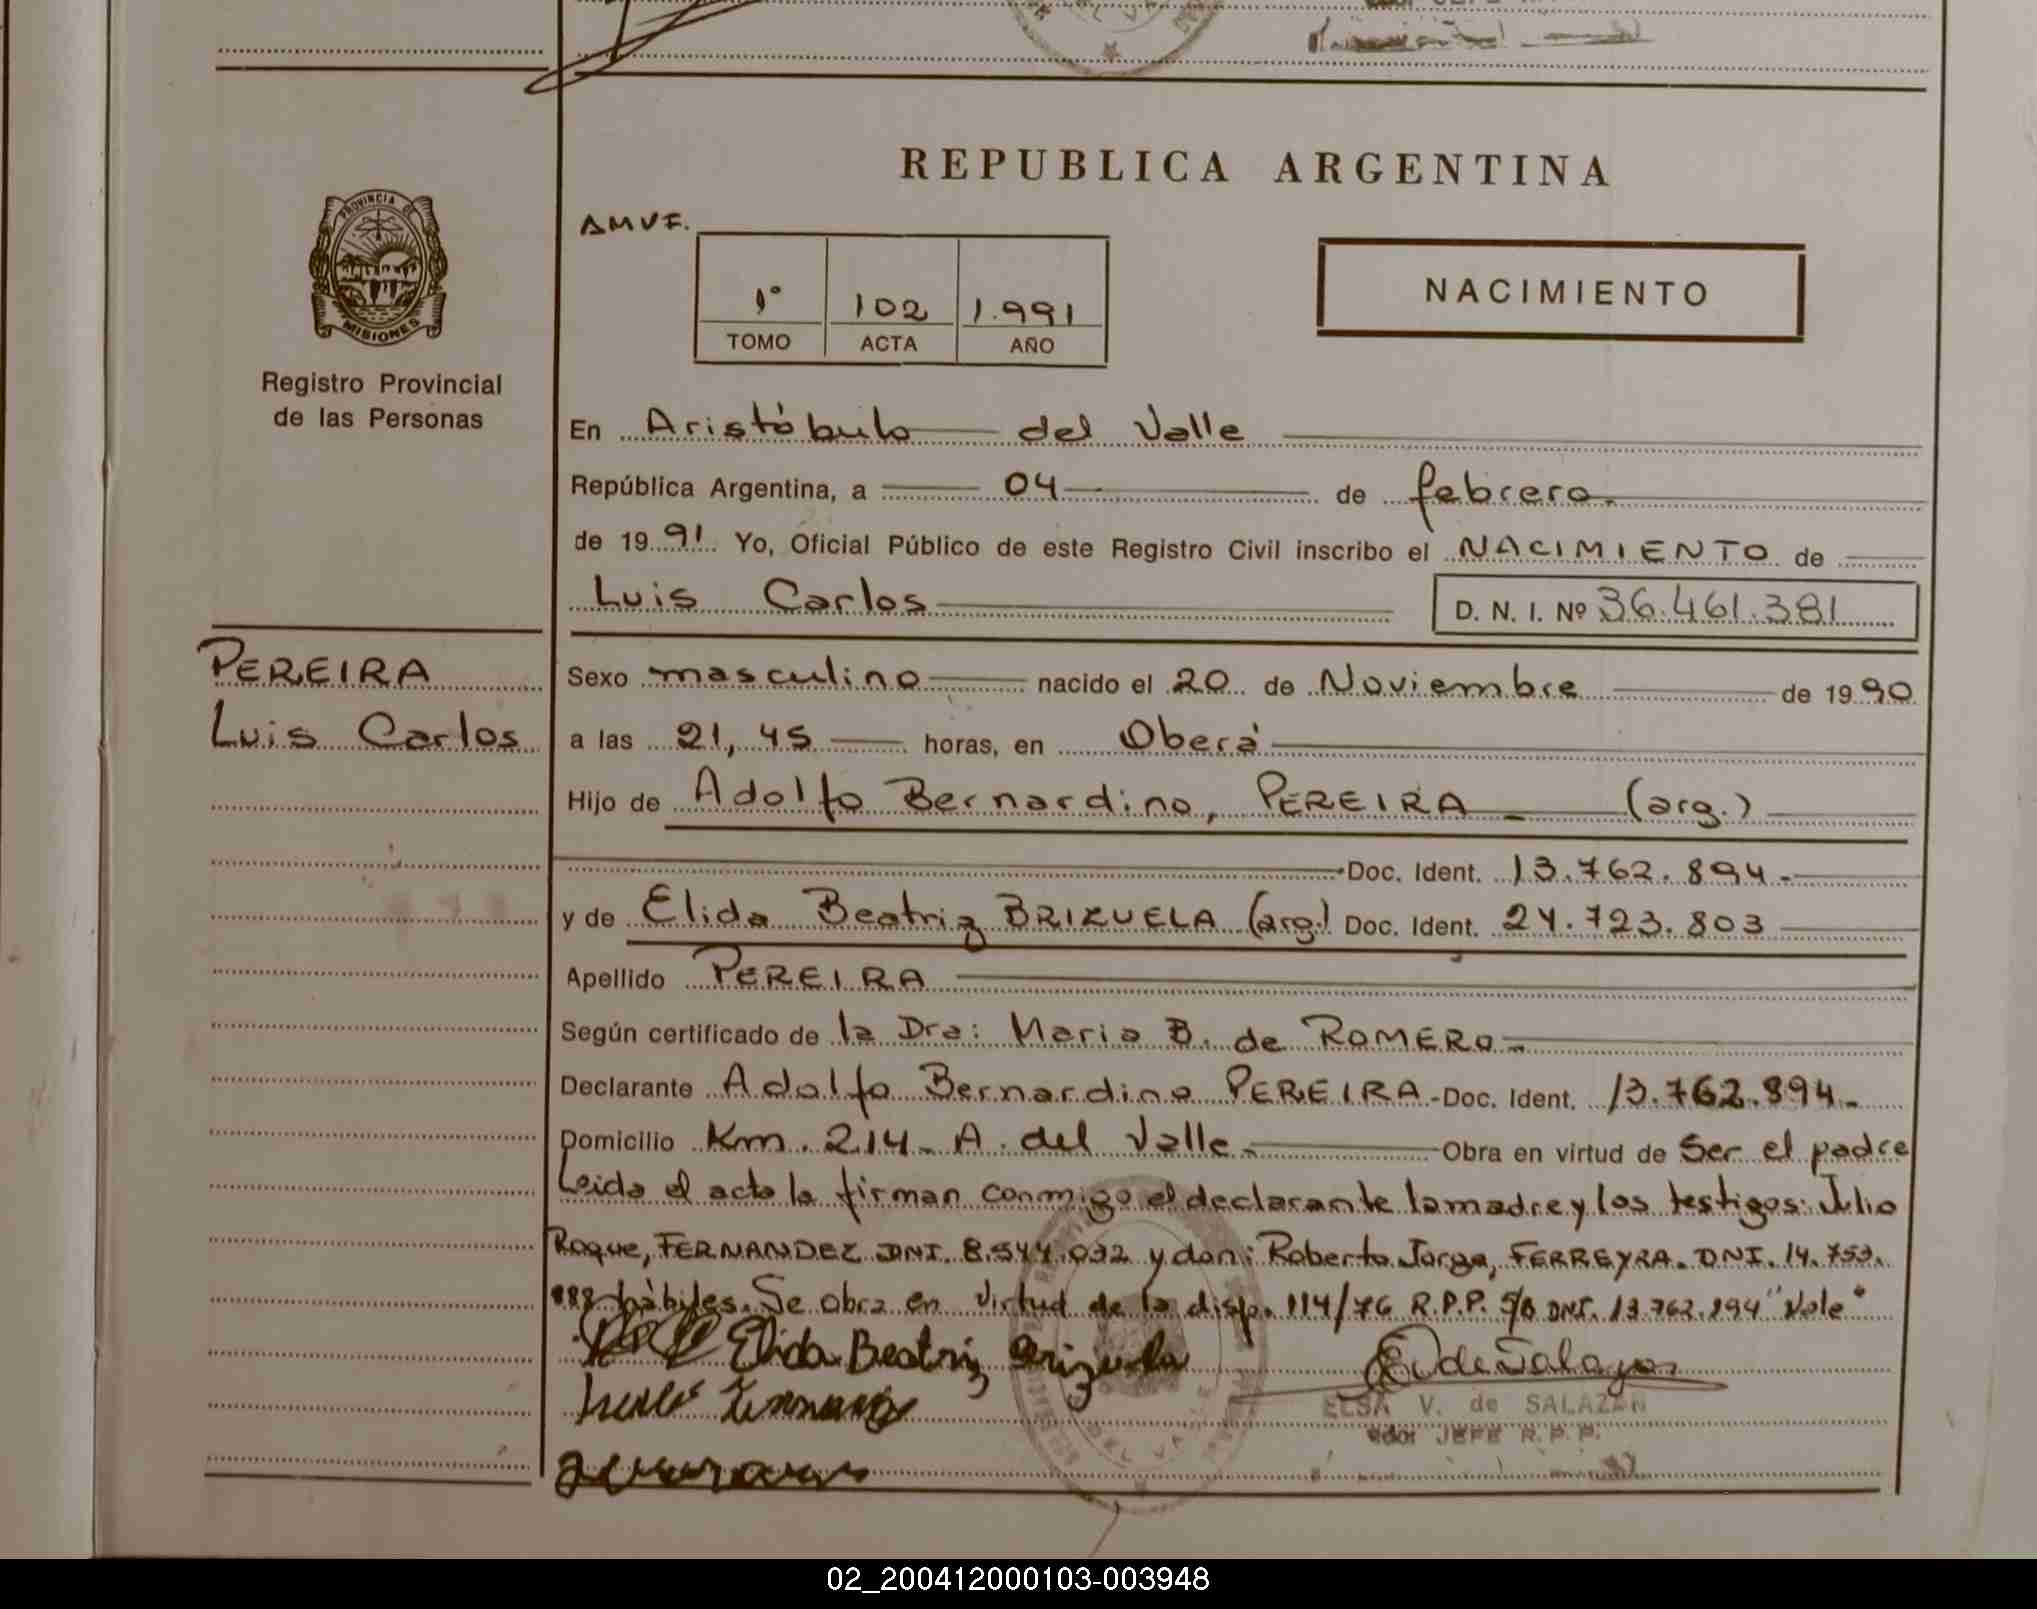 REPUBLICA ARGENTINA
PROVINCIA DE
MISIONES
Registro Provincial
de las Personas
AMVF.
1° 102 1.991
TOMO ACTA AÑO
NACIMIENTO
En Aristóbulo del Valle
República Argentina, a 04 de febrero.
de 1991. Yo, Oficial Público de este Registro Civil inscribo el NACIMIENTO de
Luis Carlos D. N. I. Nº 36.461.381
PEREIRA
Luis Carlos
Sexo masculino nacido el 20 de Noviembre de 1990
a las 21,45 horas, en Oberá
Hijo de Adolfo Bernardino, PEREIRA (arg.)
Doc. Ident. 13.762.894.
y de Elida Beatriz BRIZUELA (arg.) Doc. Ident. 24.723.803
Apellido PEREIRA
Según certificado de la Dra: Maria B. de ROMERO
Declarante Adolfo Bernardino PEREIRA - Doc. Ident. 13.762.894.
Domicilio Km. 214 - A. del Valle. Obra en virtud de Ser el padre
Leida el acta la firman conmigo el declarante la madre y los testigos: Julio
Roque, FERNANDEZ DNI. 8.544.032 y don: Roberto Jorge, FERREYRA. DNI. 14.753.
888 hàbiles. Se obra en virtud de la disp. 114/76 R.P.P. S/B DNI. 13.762.894 "Vale"
Elida Beatriz Brizuela
E V de Salazar
ELSA V. de SALAZAR
JEFE R.P.P.
DEL VALLE
02_200412000103-003948